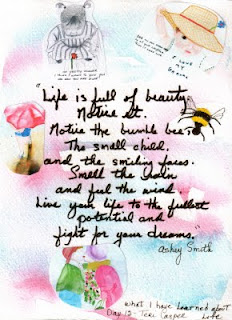 "Life is full of beauty.
Notice it.
Notice the bumble bee,
The small child,
and the smiling faces.
Smell the rain
and feel the wind.
Live your life to the fullest
potential and
fight for your dreams."
Ashley Smith
what I have learned about
Day 12 - Teri Casper Life